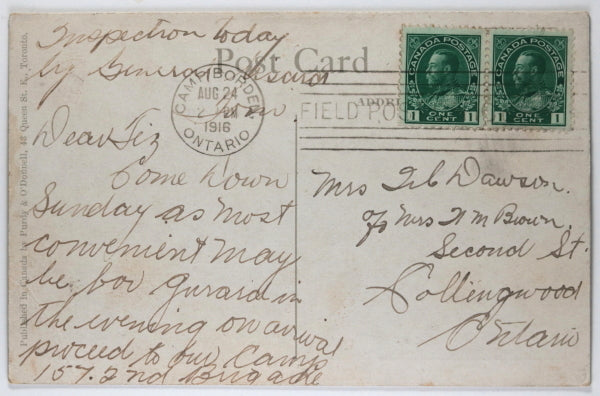 Inspection today
by General Lessard
Tom
Dear Liz
Come down
Sunday as most
convenient may
be for guard in
the evening on arrival
proceed to our Camp
157. 2nd Brigade
Post Card
CAMP BORDEN
AUG 24
PM
1916
ONTARIO
FIELD POS
ADDRE
CANADA POSTAGE
1 ONE CENT 1
CANADA POSTAGE
1 ONE CENT 1
Mrs Dawson.
c/o Mrs W M Brown
Second St.
Collingwood
Ontario
Published in Canada by Purdy & O'Donnell, 48 Queen St. E., Toronto.